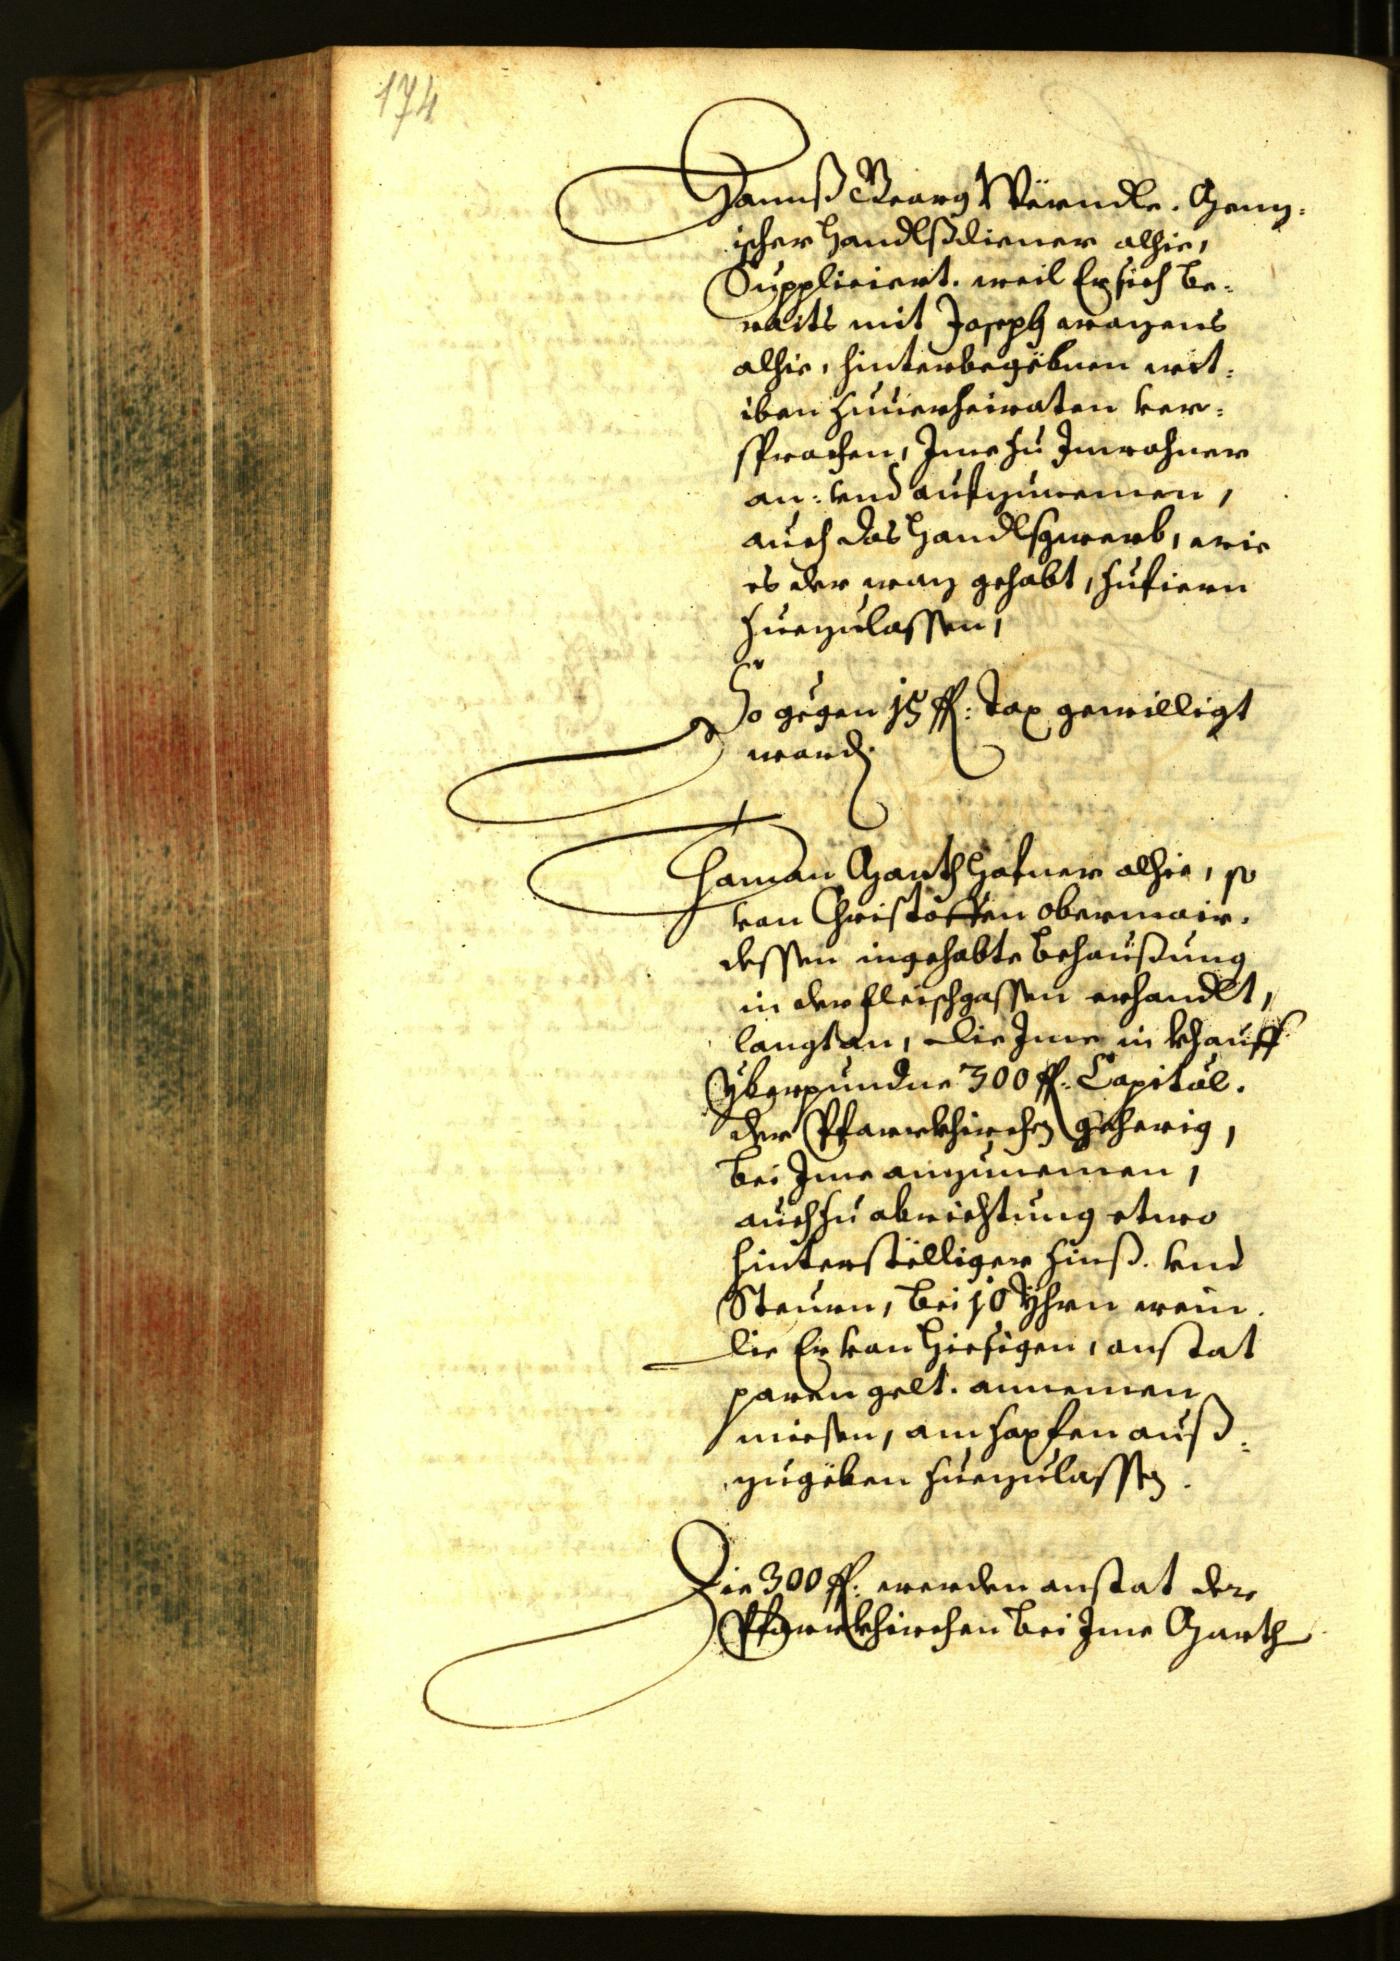 174
Hannß Georg Wërndle. Geny-
ischer Handlßdiener alhie,
Suppliciert. weil Er sich be-
raits mit Joseph wagens
alhie, hinterbegëbnen wit-
iben zuuerheiraten ver-
sprochen, Jme zu Jnwohner
an- vnd aufzunemen,
auch das Handlsgwerb, wie
es der wag gehabt, zufiern
zuezulassen,
So gegen 15 fl: Tax gewilligt
ward.
Haman Garth Hafner alhie, so
von Christoffen Obermair.
dessen ingehabte Behaußung
in der fleischgassen erhandlt,
langt an, die Jme in khauff
yberpundne 300 fl: Capital.
der Pfarrkhirchen geherig,
bei Jme anzunemen,
auch zu abrichtung etwo
hinterstëlliger Zinß. vnd
Steurn, bei 10 Yhrn wein.
die Er von Hiesigen, anstat
paren gelt. annemen
miesen, am Zapfen auß-
zugëben zuezulassen.
Die 300 fl: werden anstat der
Pfarrkhirchen bei Jme Garth